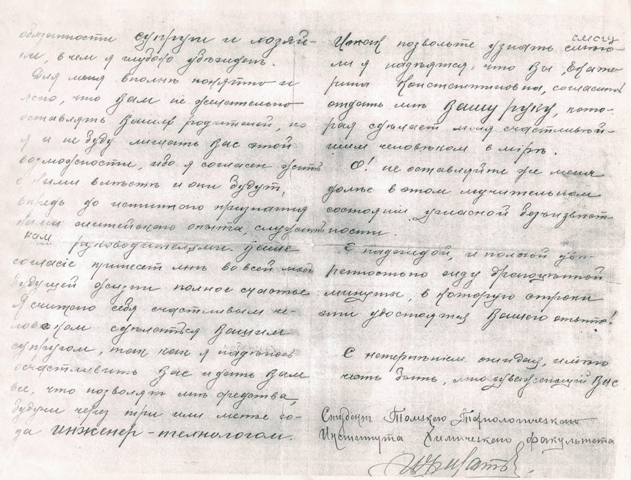 обязанности супруги и хозяй-
ки, в чем я глубоко убежден.
Для меня вполне понятно и
ясно, что Вам не желательно
оставлять Ваших родителей, но
я и не буду лишать Вас этой
возможности, ибо я согласен жить
с ними вместе и они будут,
впредь до истинного признания
нами житейского опыта, служить
нам руководителями. Ваше
согласие принесет мне во всей моей
будущей жизни полное счастье
Я считаю себя счастливым че-
ловеком сделаться Вашим
супругом, так как я надеюсь
осчастливить Вас и дать Вам
все, что позволят мне средства,
будучи через три или менее го-
да инженер-технологом.
смогу
Итак позвольте узнать,
ли я надеятся, что Вы, Екате-
рина Константиновна, согласитесь
отдать мне Вашу руку, кото-
рая сделает меня счастливей-
шим человеком в мире.
О! не оставляйте же меня
долее в этом мучительном
состоянии ужасной безызвест-
ности.
С надеждой, и полной уве-
ренностью жду драгоценной
минуты, в которую
удостоят Вашего ответа!
С нетерпением ожидая, имею
честь быть, многоуважающий Вас
Студент Томского Технологического
Института Химического факультета